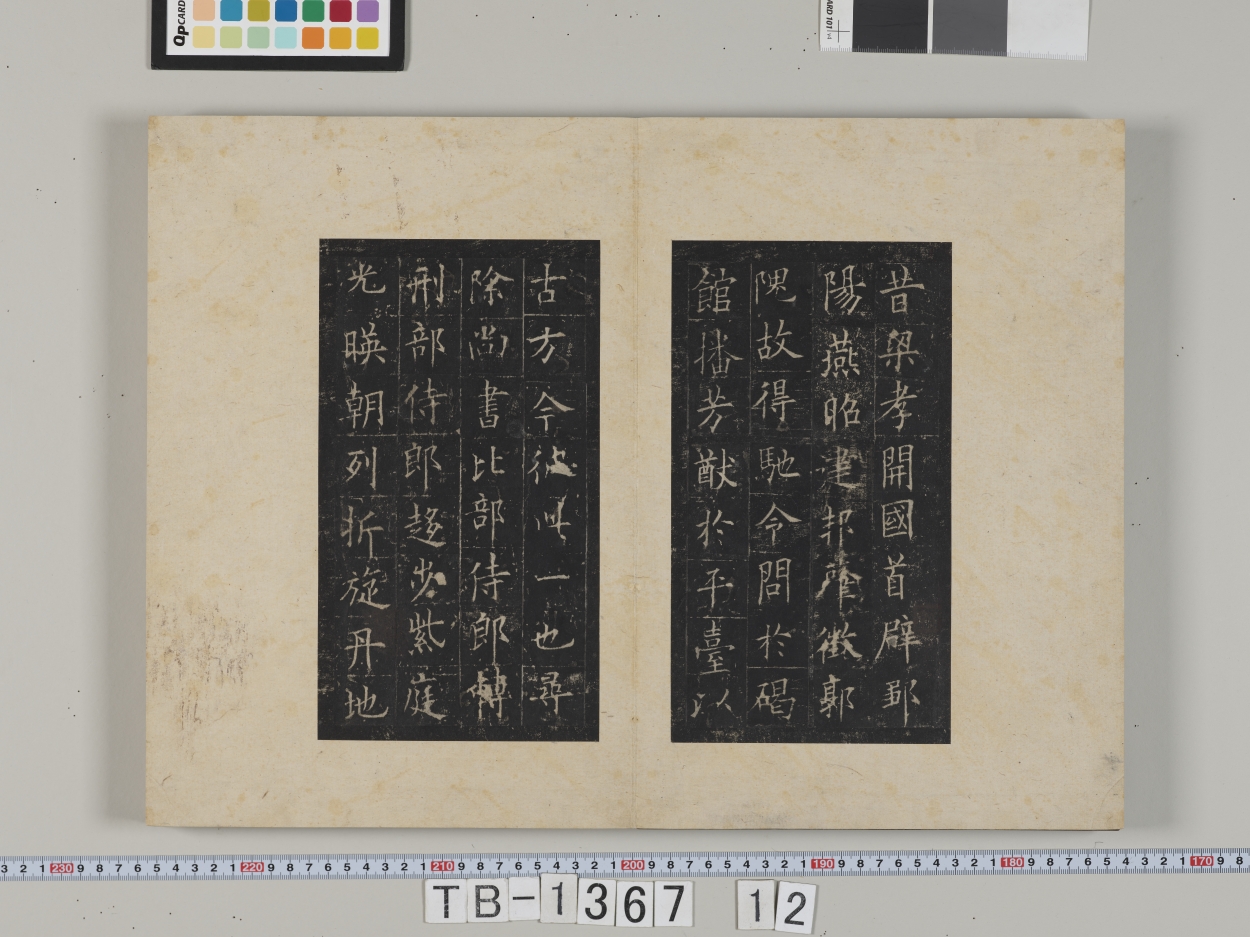 昔梁孝開國首辟鄒
陽燕昭建邦肇徵郭
隗故得馳令問於碣
館播芳猷於平臺以
古方今彼此一也尋
除尚書比部侍郎轉
刑部侍郎趍步紫庭
光暎朝列折旋丹地
QPCARD
ARD 101
3 2 1 230 9 8 7 6 5 4 3 2 1 220 9 8 7 6 5 4 3 2 1 210 9 8 7 6 5 4 3 2 1 200 9 8 7 6 5 4 3 2 1 190 9 8 7 6 5 4 3 2 1 180 9 8 7 6 5 4 3 2 1 170 9 8
TB-1367 12